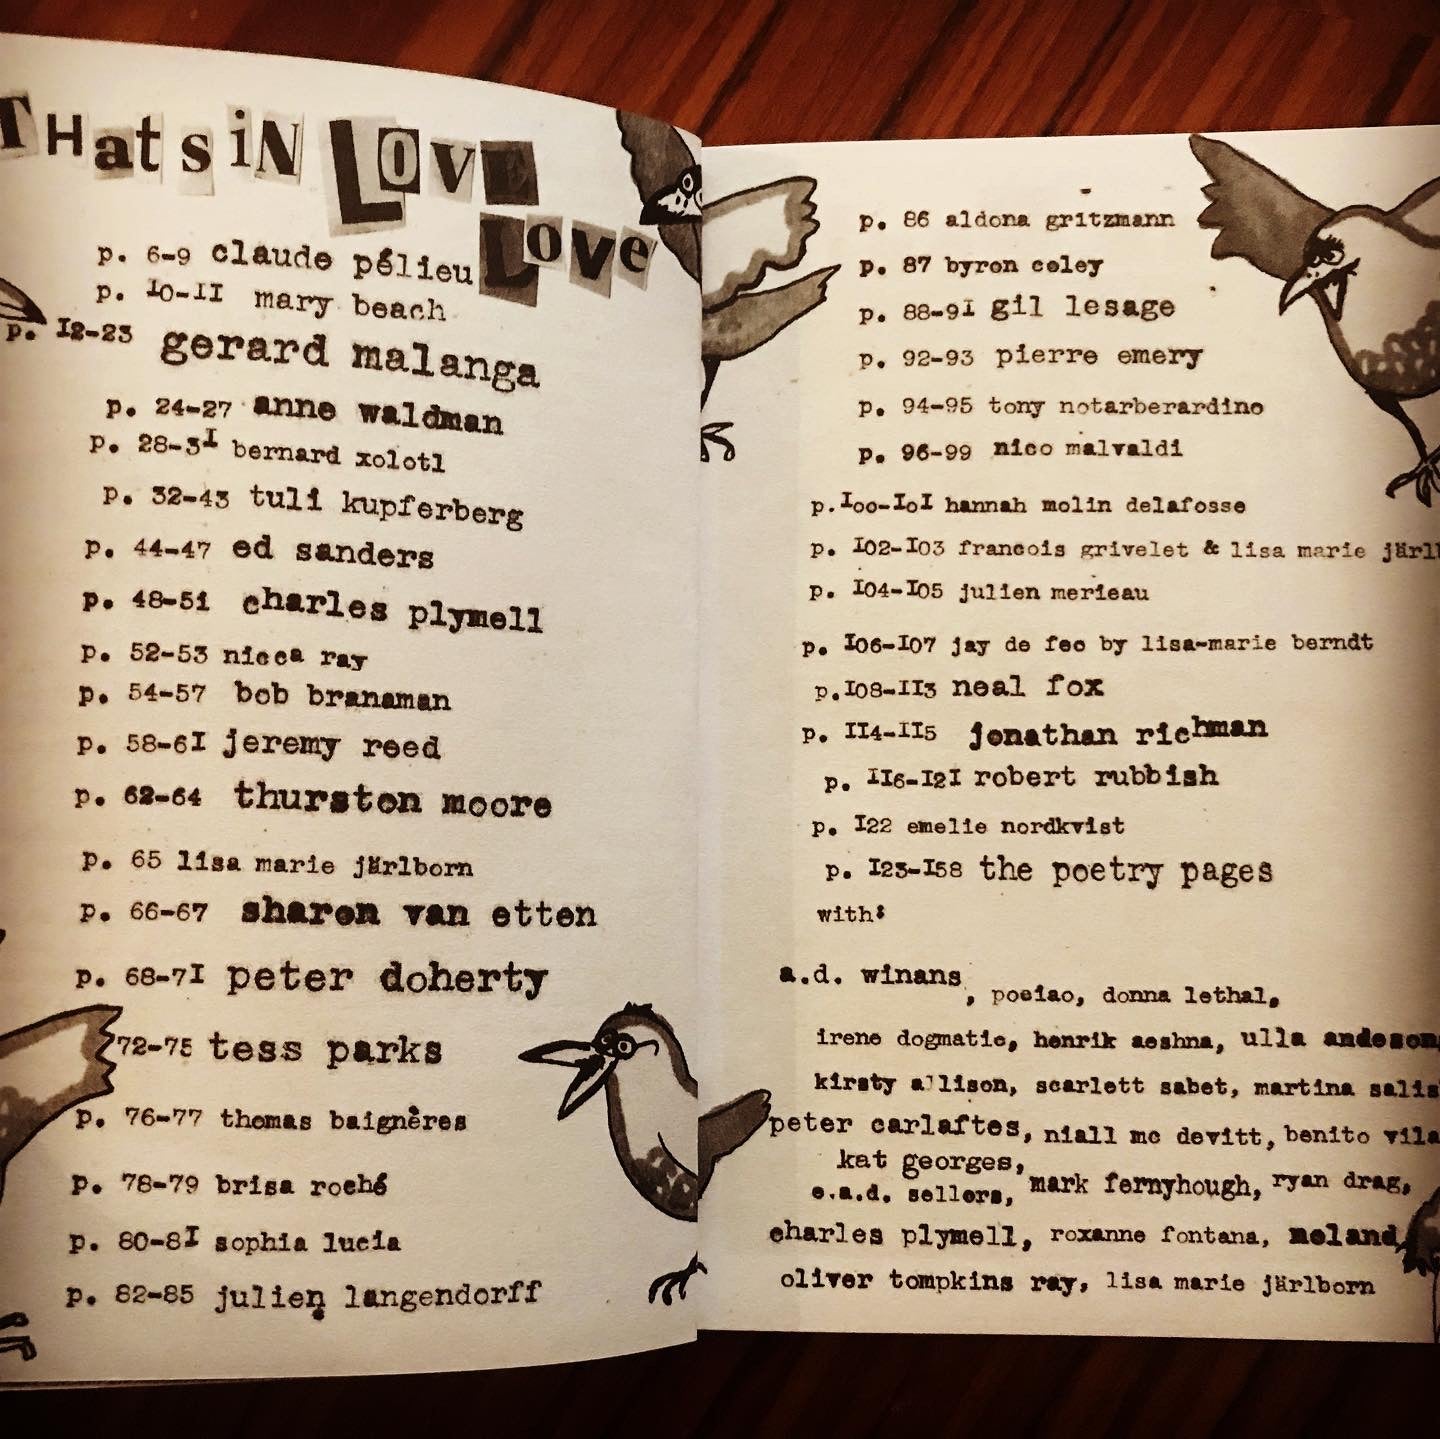 THatsiN LOVE
Love
p. 6-9 claude pélieu
p. 10-11 mary beach
p. 12-23 gerard malanga
p. 24-27 anne waldman
p. 28-31 bernard xolotl
p. 32-43 tuli kupferberg
p. 44-47 ed sanders
p. 48-51 charles plymell
p. 52-53 nicca ray
p. 54-57 bob branaman
p. 58-61 jeremy reed
p. 62-64 thurston moore
p. 65 lisa marie järlborn
p. 66-67 sharon van etten
p. 68-71 peter doherty
72-75 tess parks
p. 76-77 thomas baignères
p. 78-79 brisa roché
p. 80-81 sophia lucia
p. 82-85 julien langendorff
p. 86 aldona gritzmann
p. 87 byron coley
p. 88-91 gil lesage
p. 92-93 pierre emery
p. 94-95 tony notarberardino
p. 96-99 nico malvaldi
p.100-101 hannah molin delafosse
p. 102-103 francois grivelet & lisa marie järl
p. 104-105 julien merieau
p. 106-107 jay de feo by lisa-marie berndt
p.108-113 neal fox
p. 114-115 jonathan richman
p. 116-121 robert rubbish
p. 122 emelie nordkvist
p. 123-158 the poetry pages
with:
a.d. winans, poeiao, donna lethal,
irene dogmatic, henrik aeshna, ulla andeson,
kirsty allison, scarlett sabet, martina salis
peter carlaftes, niall mc devitt, benito vila
kat georges,
e.a.d. sellers, mark fernyhough, ryan drag,
charles plymell, roxanne fontana, neland,
oliver tompkins ray, lisa marie järlborn